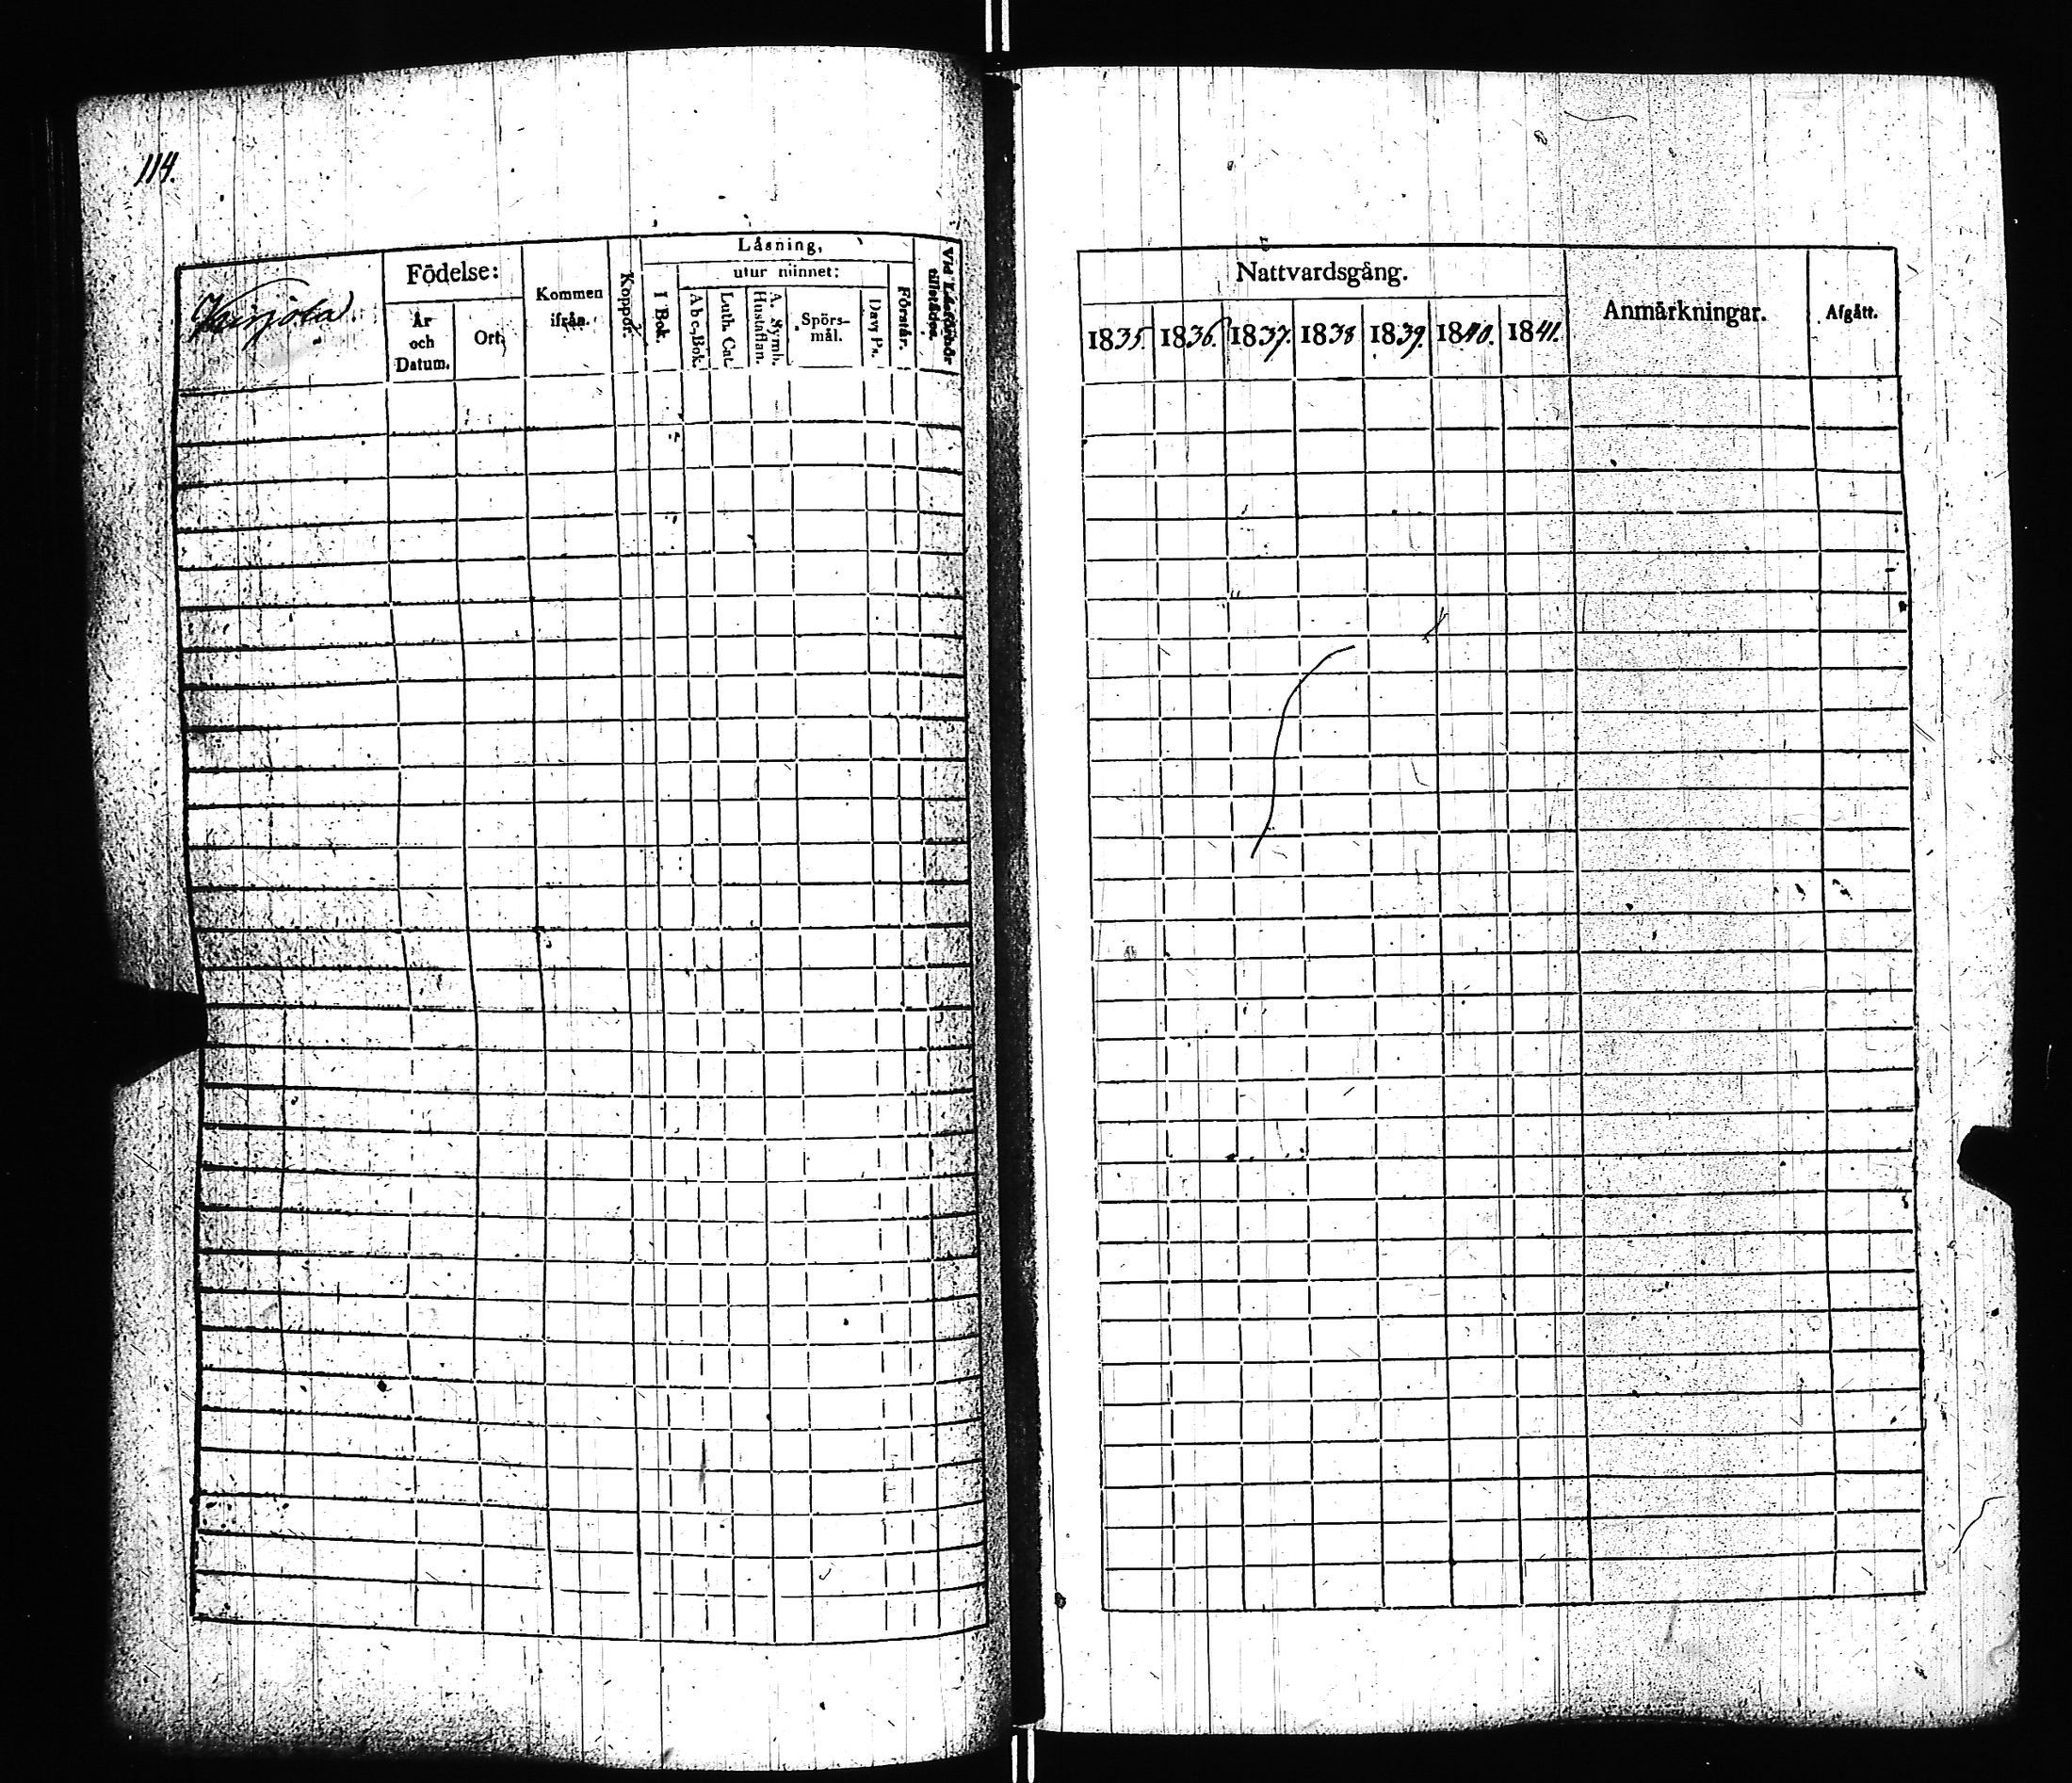 114.
Födelse:
År och Datum.
Ort.
Kommen ifrån.
Koppor.
Låsning,
I Bok.
utur minnet:
A b c-Bok.
Luth. Cat.
A. Symb. Hustaflan.
Spörsmål.
Dav: Ps.
Förstår.
Vid Låsförhör tillstädes.
Nattvardsgång.
1835. 1836. 1837. 1838 1839. 1840. 1841.
Anmårkningar.
Afgått.